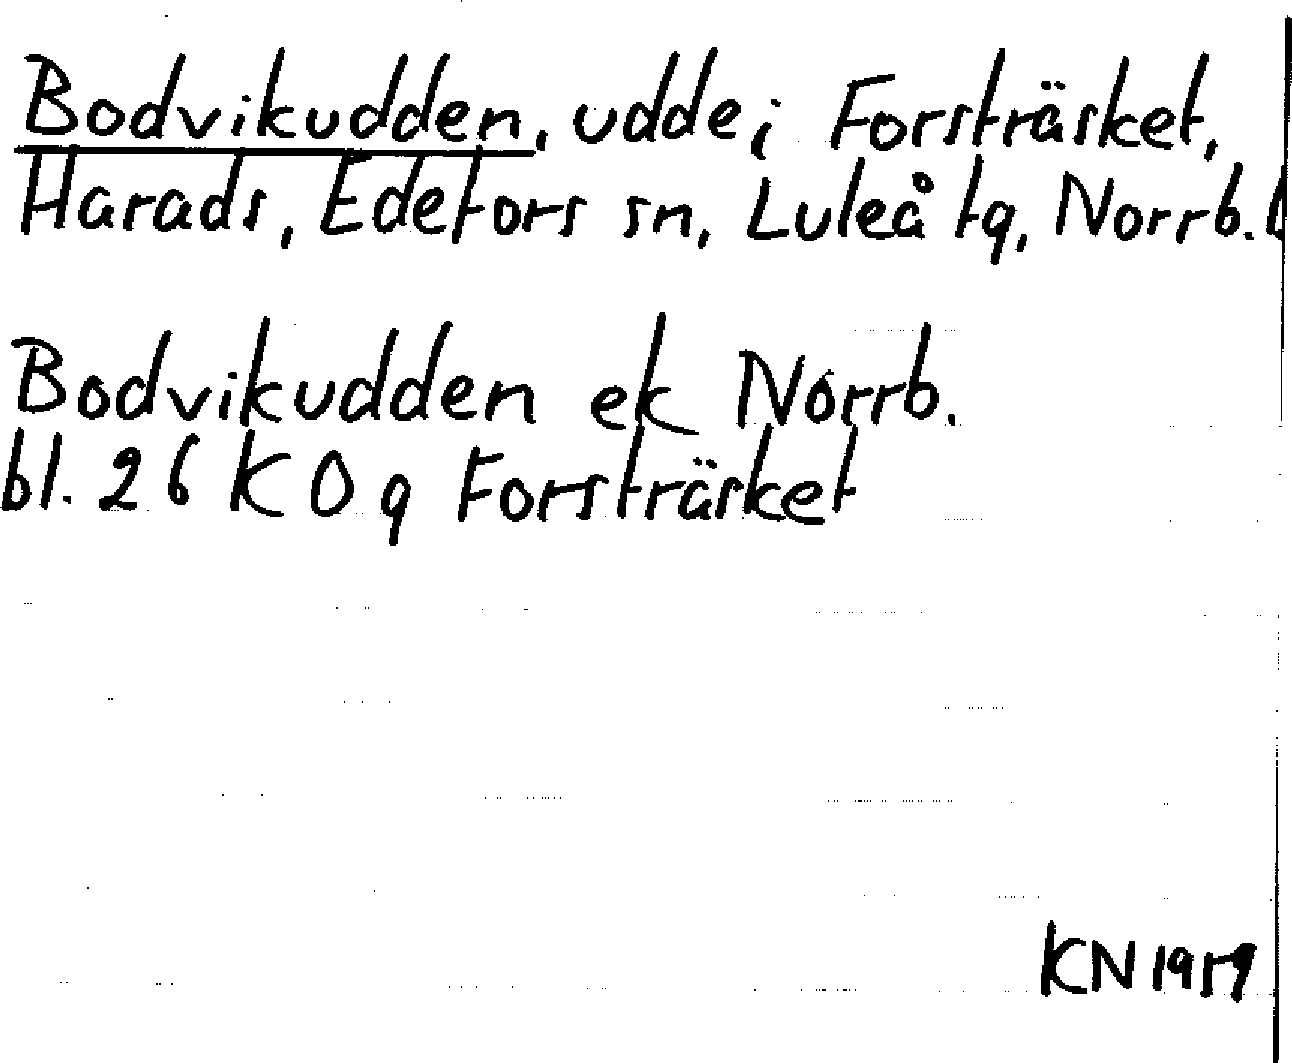 Bodvikudden, udde i Forsträsket,
Harads, Edefors sn, Luleå tg, Norrb. l
Bodvikudden ek Norrb.
bl. 26 K O q Forsträsket
KN 1959